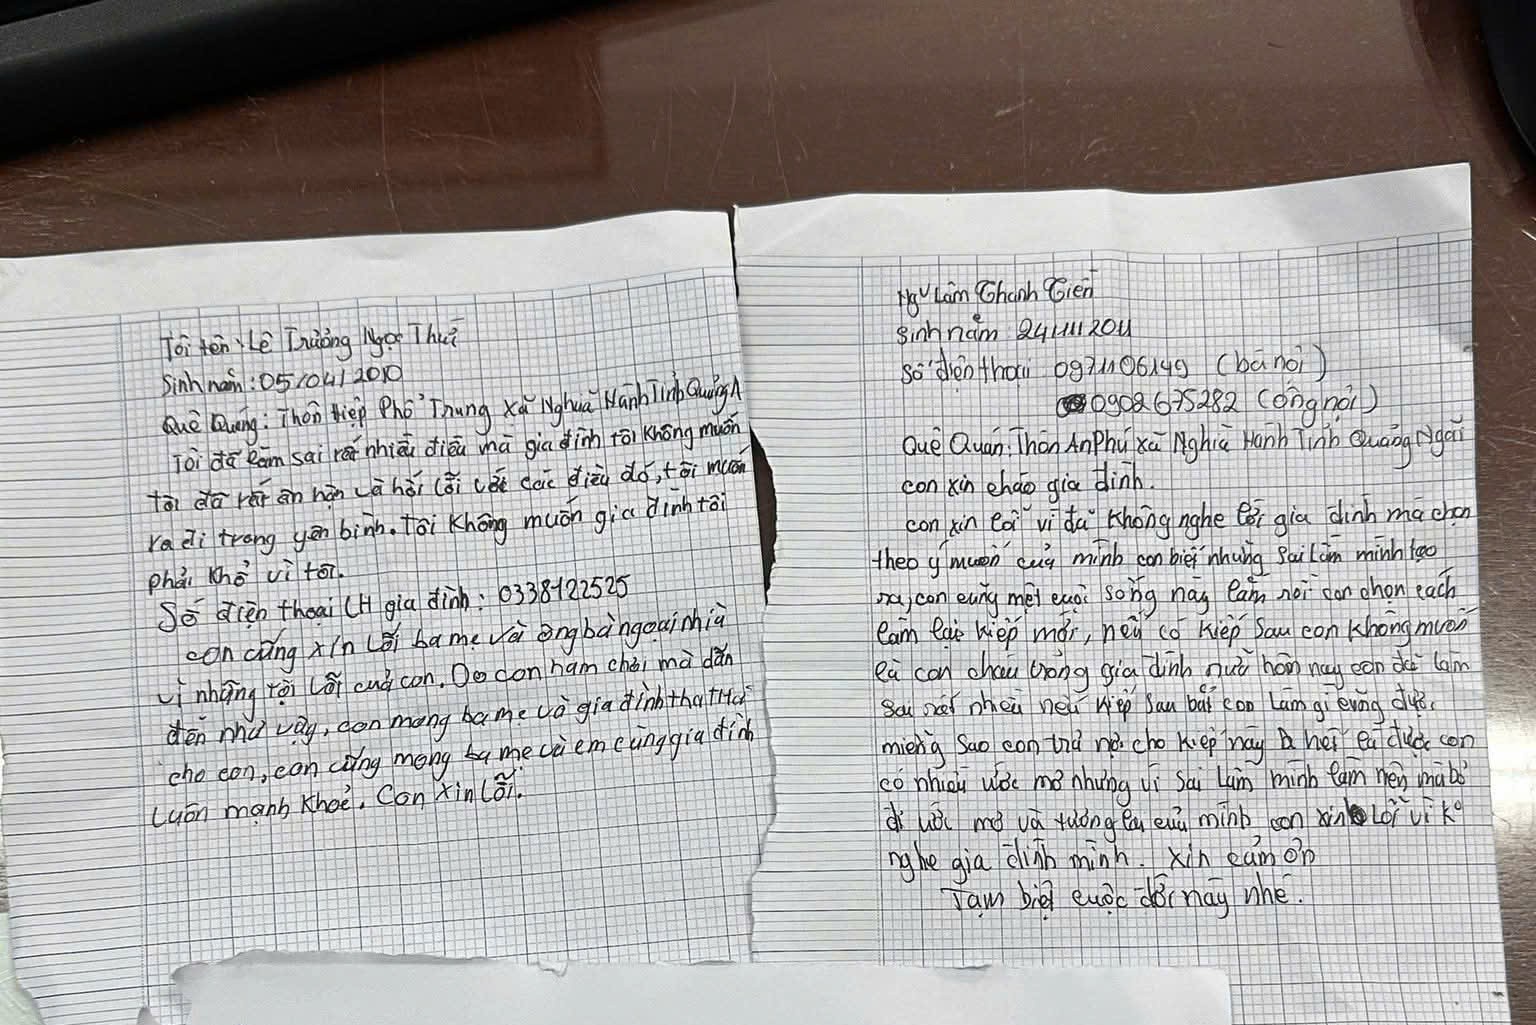 Tôi tên: Lê Trường Ngọc Thuỷ
Sinh năm: 05/04/2010
Quê Quáng: Thôn Hiệp Phổ Trung xã Nghĩa Hành Tỉnh Quảng
Tôi đã làm sai rất nhiều điều mà gia đình tôi không muốn
tôi đã rất ân hận và hối lỗi với các điều đó, tôi muốn
ra đi trong yên bình. Tôi không muốn gia đình tôi
phải khổ vì tôi.
Số điện thoại LH gia đình: 0338122525
con cũng xin lỗi ba mẹ và ông bà ngoại nhìu
vì những tội lỗi của con. Do con ham chơi mà dẫn
đến như vậy, con mong ba mẹ và gia đình tha thứ
cho con, con cũng mong ba mẹ và em cùng gia đình
luôn mạnh khoẻ. Con xin lỗi.
Lâm Thanh Tiền
sinh năm 2011
số điện thoại (bà nội)
0902675282 (ông nội)
Quê Quán: Thôn An Phú xã Nghĩa Hành Tỉnh Quảng Ngãi
con xin chào gia đình.
con xin lỗi vì đã không nghe lời gia đình mà chọn
theo ý muốn của mình con biết nhưng sai lầm mình tạo
ra, con cũng mệt cuộc sống này lắm rồi con chọn cách
làm lại kiếp mới, nếu có kiếp sau con không muốn
là con cháu trong gia đình nữa hôm nay con đã làm
sai rất nhiều nếu kiếp sau bắt con làm gì cũng được
miễng sao con trả nợ cho kiếp này hết là được con
có nhiều ước mơ nhưng vì sai lầm mình làm nên mà bỏ
đi ước mơ và tương lai của mình con xin lỗi vì ko
nghe gia đình mình. Xin cảm ơn
Tạm biệt cuộc đời này nhé.